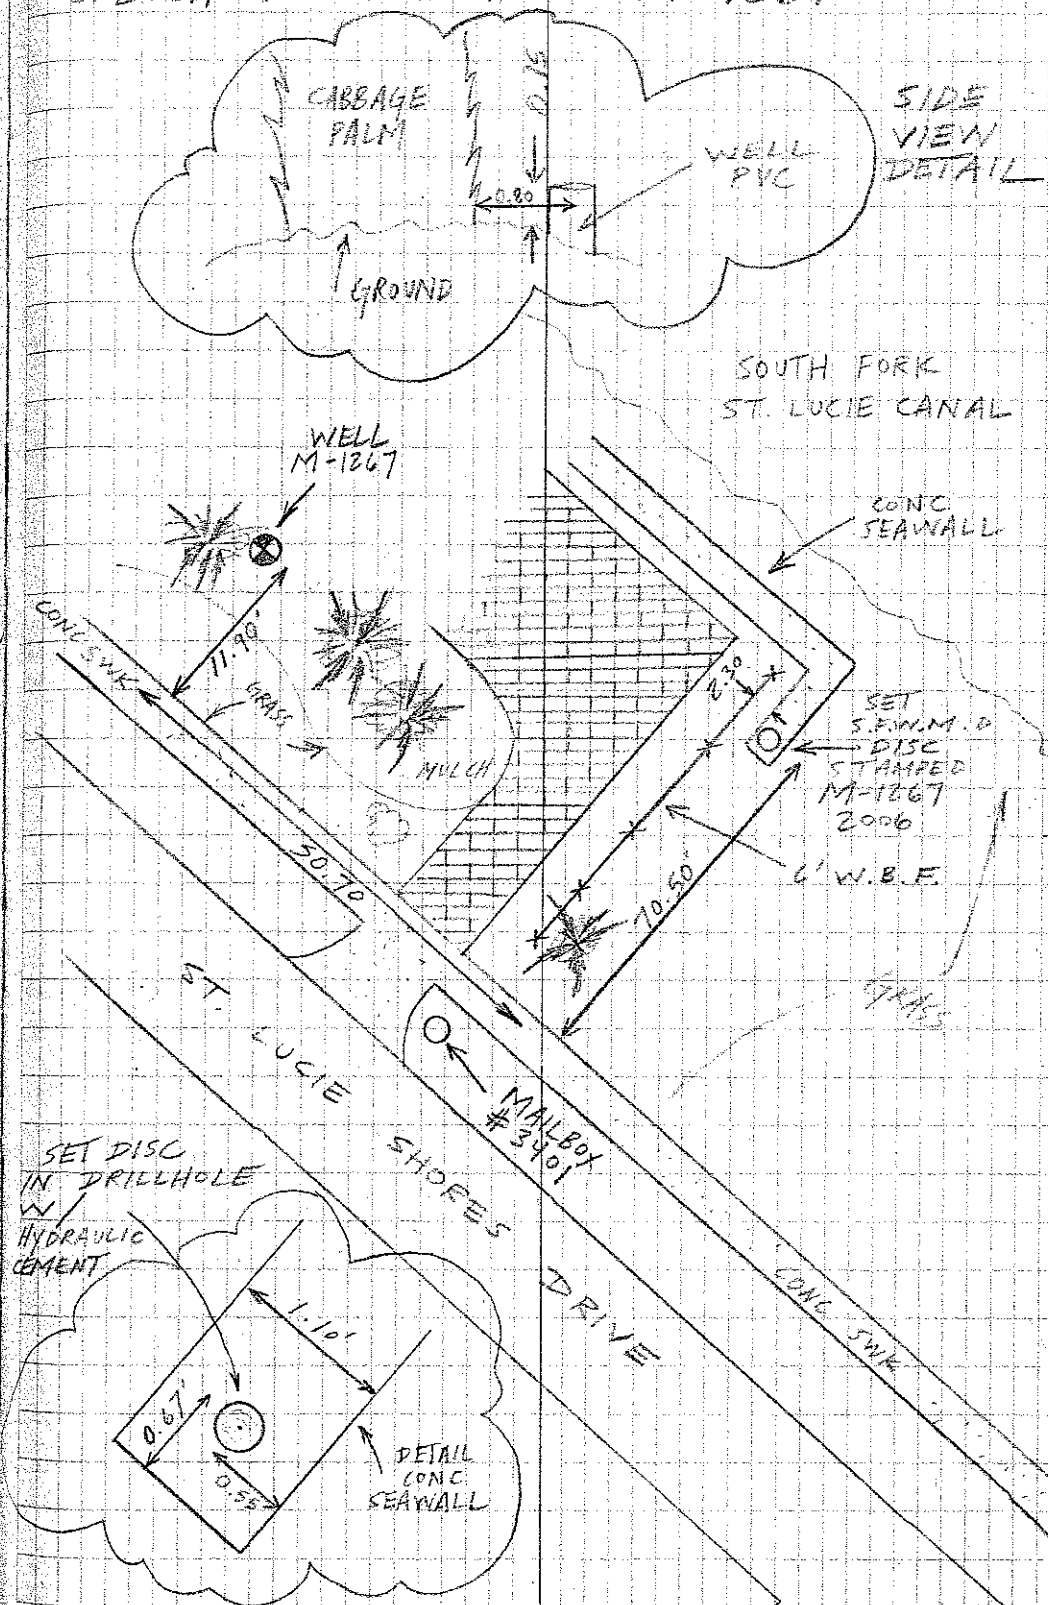 CABBAGE
PALM
0.15
SIDE
VIEW
DETAIL
WELL
PVC
0.80
GROUND
SOUTH FORK
ST. LUCIE CANAL
WELL
M-1267
CONC
SEAWALL
CONC SWK
11.90'
GRASS
MULCH
2.30
SET
S.F.W.M.D
DISC
STAMPED
M-1267
2006
6' W.B.F.
50.70
70.50'
GRASS
ST. LUCIE SHORES DRIVE
MAILBOX
#3401
SET DISC
IN DRILLHOLE
W/
HYDRAULIC
CEMENT
CONC SWK
1.10'
0.67'
0.55'
DETAIL
CONC
SEAWALL